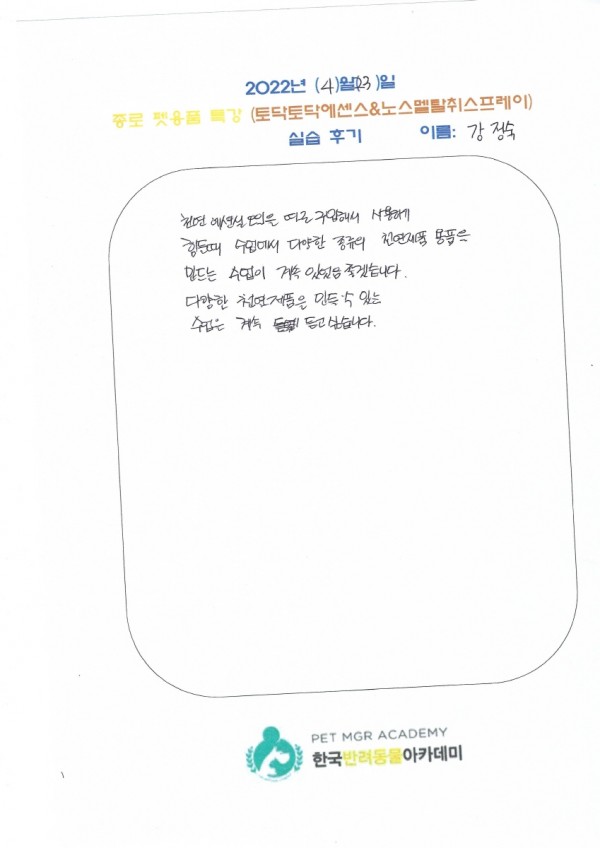 2022년 (4)월(23)일
종로 펫용품 특강 (토닥토닥에센스&노스멜탈취스프레이)
실습 후기 이름: 강 정숙
천연 따로 구입해서 사용하게
수업에서 다양한 종류의 천연제품 용품을
만드는 수업이 계속 있었음 좋겠습니다.
다양한 천연제품은 만들 수 있는
수업은 계속 듣고 싶습니다.
PET MGR ACADEMY
한국반려동물아카데미